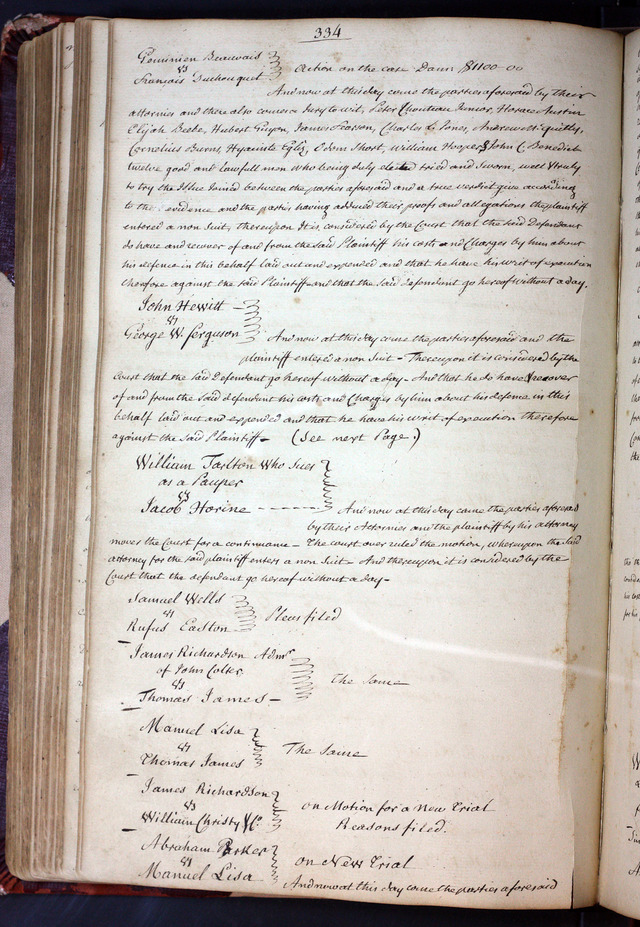 334
Gominien Beauvais
vs
Francois Duchouquet
Action on the case Dam $1100-00
And now at this day come the parties aforesaid by their
attornies and there also comes a Jury to wit, Peter Chouteau Junior, Horace Austin
Elijah Beebe, Hubert Guyon, James Pearson, Charles L Jones, Andrew McQuithy,
Cornelius Burns, Hyacinte Egliz, Odem Short, William Hooper & John C. Benedick
twelve good ant lawfull men who being duly elected tried and Sworn, well & truly
to try the Issue Joined between the parties aforesaid and a true verdict give according
to the evidence and the parties having adduced their proofs and allegations the plaintiff
entered a non Suit, thereupon It is considered by the Court that the Said Defendant
do have and recover of and from the Said Plaintiff his costs and Charges by him about
his defence in this behalf laid out and expended and that he have his writ of execution
therefore against the said Plaintiff and that the Said defendant go hereof without a day.
John Hewitt
vs
George W. Ferguson
And now at this day come the parties aforesaid and the
plaintiff entered a non Suit - Thereupon it is considered by the
Court that the Said Defendant go hereof without a day - And that he do have & recover
of and from the Said defendant his costs and Charges by him about his defense in this
behalf laid out and expended and that he have his writ of execution therefore
against the Said Plaintiff - (See next Page.)
William Tarlton Who Sues
as a Pauper
vs
Jacob Horine
And now at this day came the parties aforesaid
by their Attornies and the plaintiff by his attorney
moves the Court for a continuance - The court over ruled the motion, whereupon the Said
attorney for the said plaintiff enters a non Suit - And thereupon it is considered by the
Court that the defendant go hereof without a day -
Samuel Wells
vs
Rufus Easton
Pleas filed
James Richardson Admr
of John Colter
vs
Thomas James -
The Same
Manuel Lisa
vs
Thomas James
The Same
James Richardson
vs
William Christy & Co.
on Motion for a New Trial
Reasons filed.
Abraham Parker
vs
Manuel Lisa
on New Trial
And now at this day come the parties aforesaid